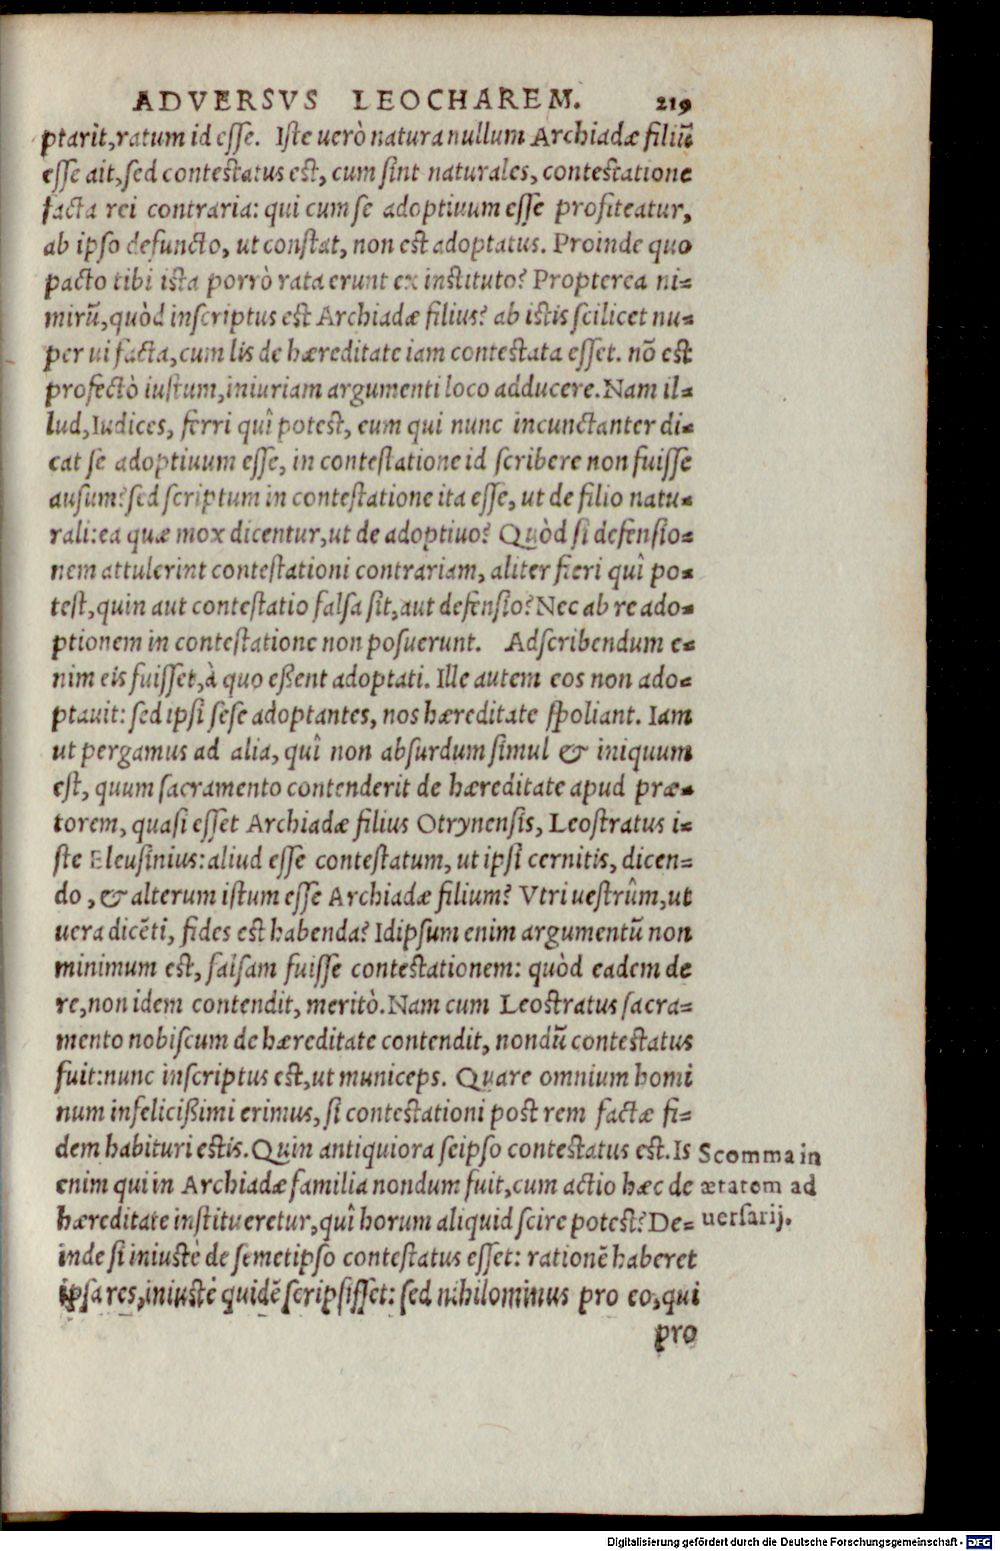 ADVERSVS LEOCHAREM. 219
ptarit, ratum id esse. Iste uerò natura nullum Archiadæ filiũ
esse ait, sed contestatus est, cum sint naturales, contestatione
facta rei contraria: qui cum se adoptiuum esse profiteatur,
ab ipso defuncto, ut constat, non est adoptatus. Proinde quo
pacto tibi ista porrò rata erunt ex instituto? Propterea ni-
mirũ, quòd inscriptus est Archiadæ filius? ab istis scilicet nu-
per ui facta, cum lis de hæreditate iam contestata esset. nõ est
profectò iustum, iniuriam argumenti loco adducere. Nam il-
lud, Iudices, ferri quî potest, eum qui nunc incunctanter di-
cat se adoptiuum esse, in contestatione id scribere non fuisse
ausum? sed scriptum in contestatione ita esse, ut de filio natu-
rali: ea quæ mox dicentur, ut de adoptiuo? Quòd si defensio-
nem attulerint contestationi contrariam, aliter fieri quî po-
test, quin aut contestatio falsa sit, aut defensio? Nec ab re ado-
ptionem in contestatione non posuerunt. Adscribendum e-
nim eis fuisset, à quo eßent adoptati. Ille autem eos non ado-
ptauit: sed ipsi sese adoptantes, nos hæreditate spoliant. Iam
ut pergamus ad alia, quî non absurdum simul & iniquum
est, quum sacramento contenderit de hæreditate apud præ-
torem, quasi esset Archiadæ filius Otrynensis, Leostratus i-
ste Eleusinius: aliud esse contestatum, ut ipsi cernitis, dicen-
do, & alterum istum esse Archiadæ filium? Vtri uestrûm, ut
uera dicẽti, fides est habenda? Idipsum enim argumentũ non
minimum est, falsam fuisse contestationem: quòd eadem de
re, non idem contendit, meritò. Nam cum Leostratus sacra-
mento nobiscum de hæreditate contendit, nondũ contestatus
fuit: nunc inscriptus est, ut municeps. Quare omnium homi
num infelicißimi erimus, si contestationi post rem factæ fi-
dem habituri estis. Quin antiquiora seipso contestatus est. Is
enim qui in Archiadæ familia nondum fuit, cum actio hæc de
hæreditate institueretur, quî horum aliquid scire potest? De-
inde si iniustè de semetipso contestatus esset: rationẽ haberet
ipsa res, iniustè quidẽ scripsisset: sed nihilominus pro eo, qui
pro
Scomma in
ætatem ad
uersarij.
Digitalisierung gefördert durch die Deutsche Forschungsgemeinschaft - DFG